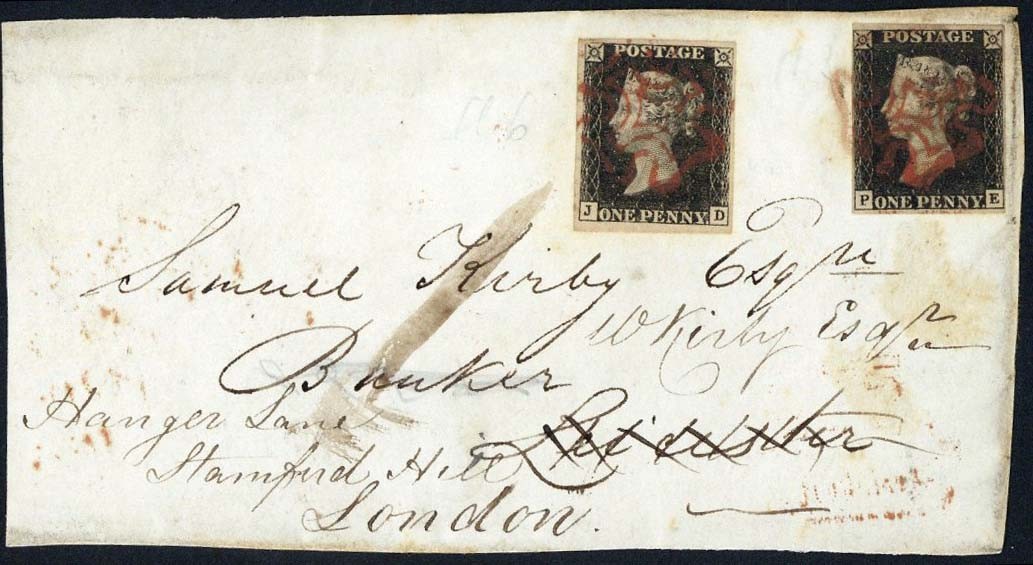 POSTAGE
J ONE PENNY D
POSTAGE
P ONE PENNY E
Samuel Kirby Esqre
W Kirby Esqre
Banker
Hanger Lane
Leicester
Stamford Hill
London.